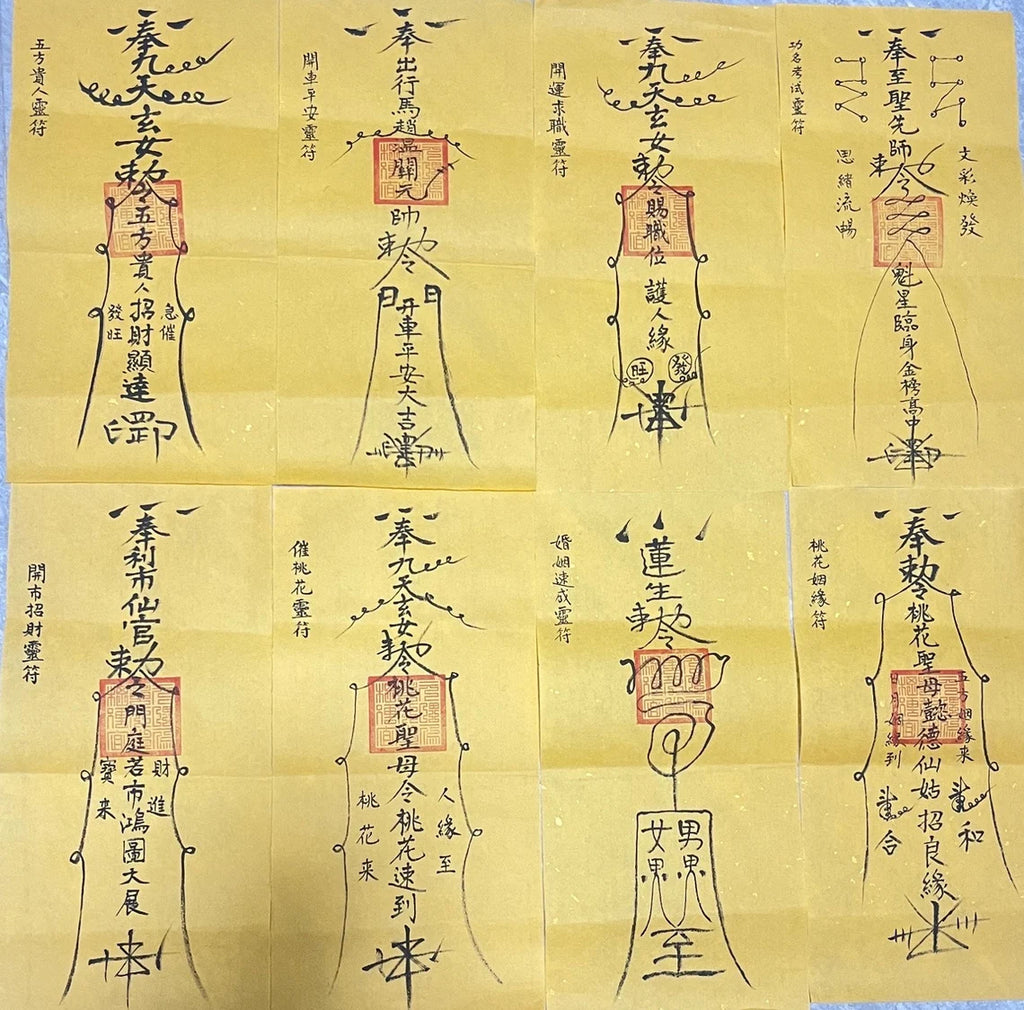 五方貴人靈符
奉九天玄女勅令五方貴人招財顯達
急催
發旺
開車平安靈符
奉出行馬趙溫關元帥勅令
開車平安大吉
開運求職靈符
奉九天玄女勅令賜職位護人緣
旺
發
功名考试靈符
奉至聖先師勅令
文彩煥發
思緒流暢
魁星臨身金榜高中
開市招財靈符
奉利市仙官勅令門庭若市鴻圖大展
財進
寶来
催桃花靈符
奉九天玄女勅令桃花聖母令桃花速到
人緣至
桃花来
婚姻速成靈符
蓮生勅令
男
女
至
桃花姻緣符
奉勅令桃花聖母懿德仙姑招良緣
五方姻緣来
日月姻緣到
和
合